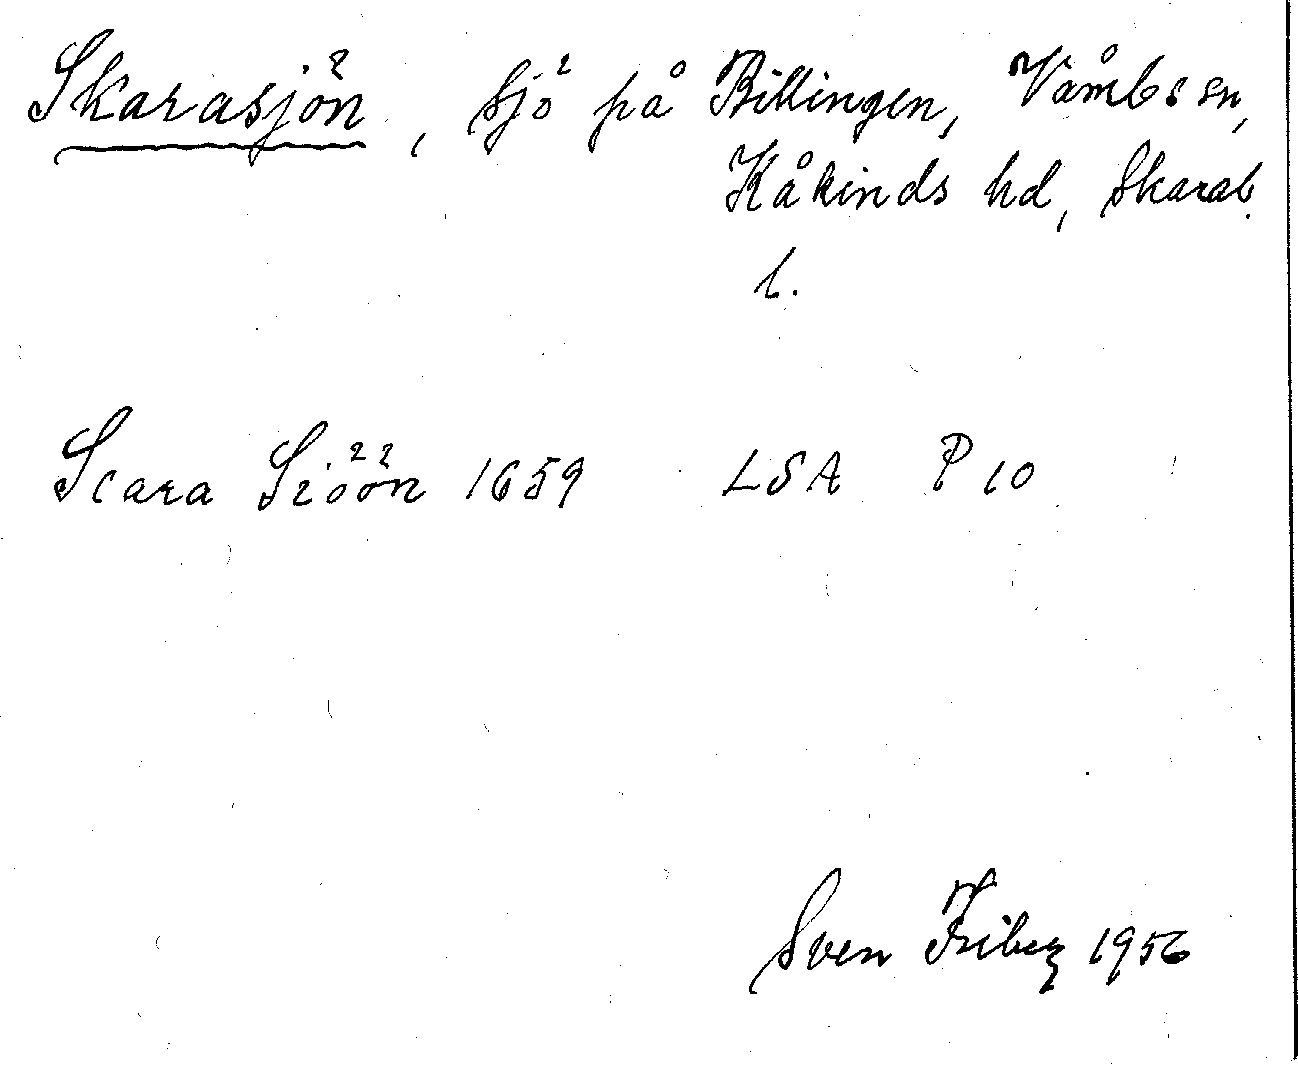 Skarasjön, sjö på Billingen, Våmbs sn,
Kåkinds hd, Skarab.
l.
Scara Siöön 1659 LSA P 10
Sven Friberg 1956